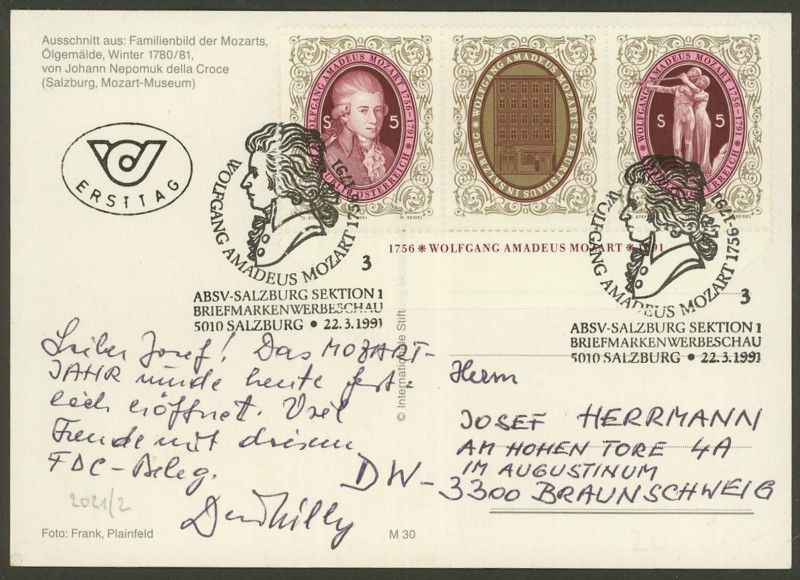 Ausschnitt aus: Familienbild der Mozarts,
Ölgemälde, Winter 1780/81,
von Johann Nepomuk della Croce
(Salzburg, Mozart-Museum)
ERSTTAG
WOLFGANG AMADEUS MOZART 1756-1791
S 5
REPUBLIK ÖSTERREICH
WOLFGANG AMADEUS MOZARTS GEBURTSHAUS IN SALZBURG
WOLFGANG AMADEUS MOZART 1756-1791
S 5
REPUBLIK ÖSTERREICH
1756 * WOLFGANG AMADEUS MOZART * 1791
WOLFGANG AMADEUS MOZART 1756-1791
3
ABSV-SALZBURG SEKTION 1
BRIEFMARKENWERBESCHAU
5010 SALZBURG • 22.3.1991
WOLFGANG AMADEUS MOZART 1756-1791
3
ABSV-SALZBURG SEKTION 1
BRIEFMARKENWERBESCHAU
5010 SALZBURG • 22.3.1991
Lieber Josef! Das MOZART-
JAHR wurde heute fest-
lich eröffnet. Viel
Freude mit diesem
FDC-Beleg.
2021/2
© Internationale Stift
Herrn
JOSEF HERRMANN
AM HOHEN TORE 4A
IM AUGUSTINUM
DW-3300 BRAUNSCHWEIG
Foto: Frank, Plainfeld
M 30